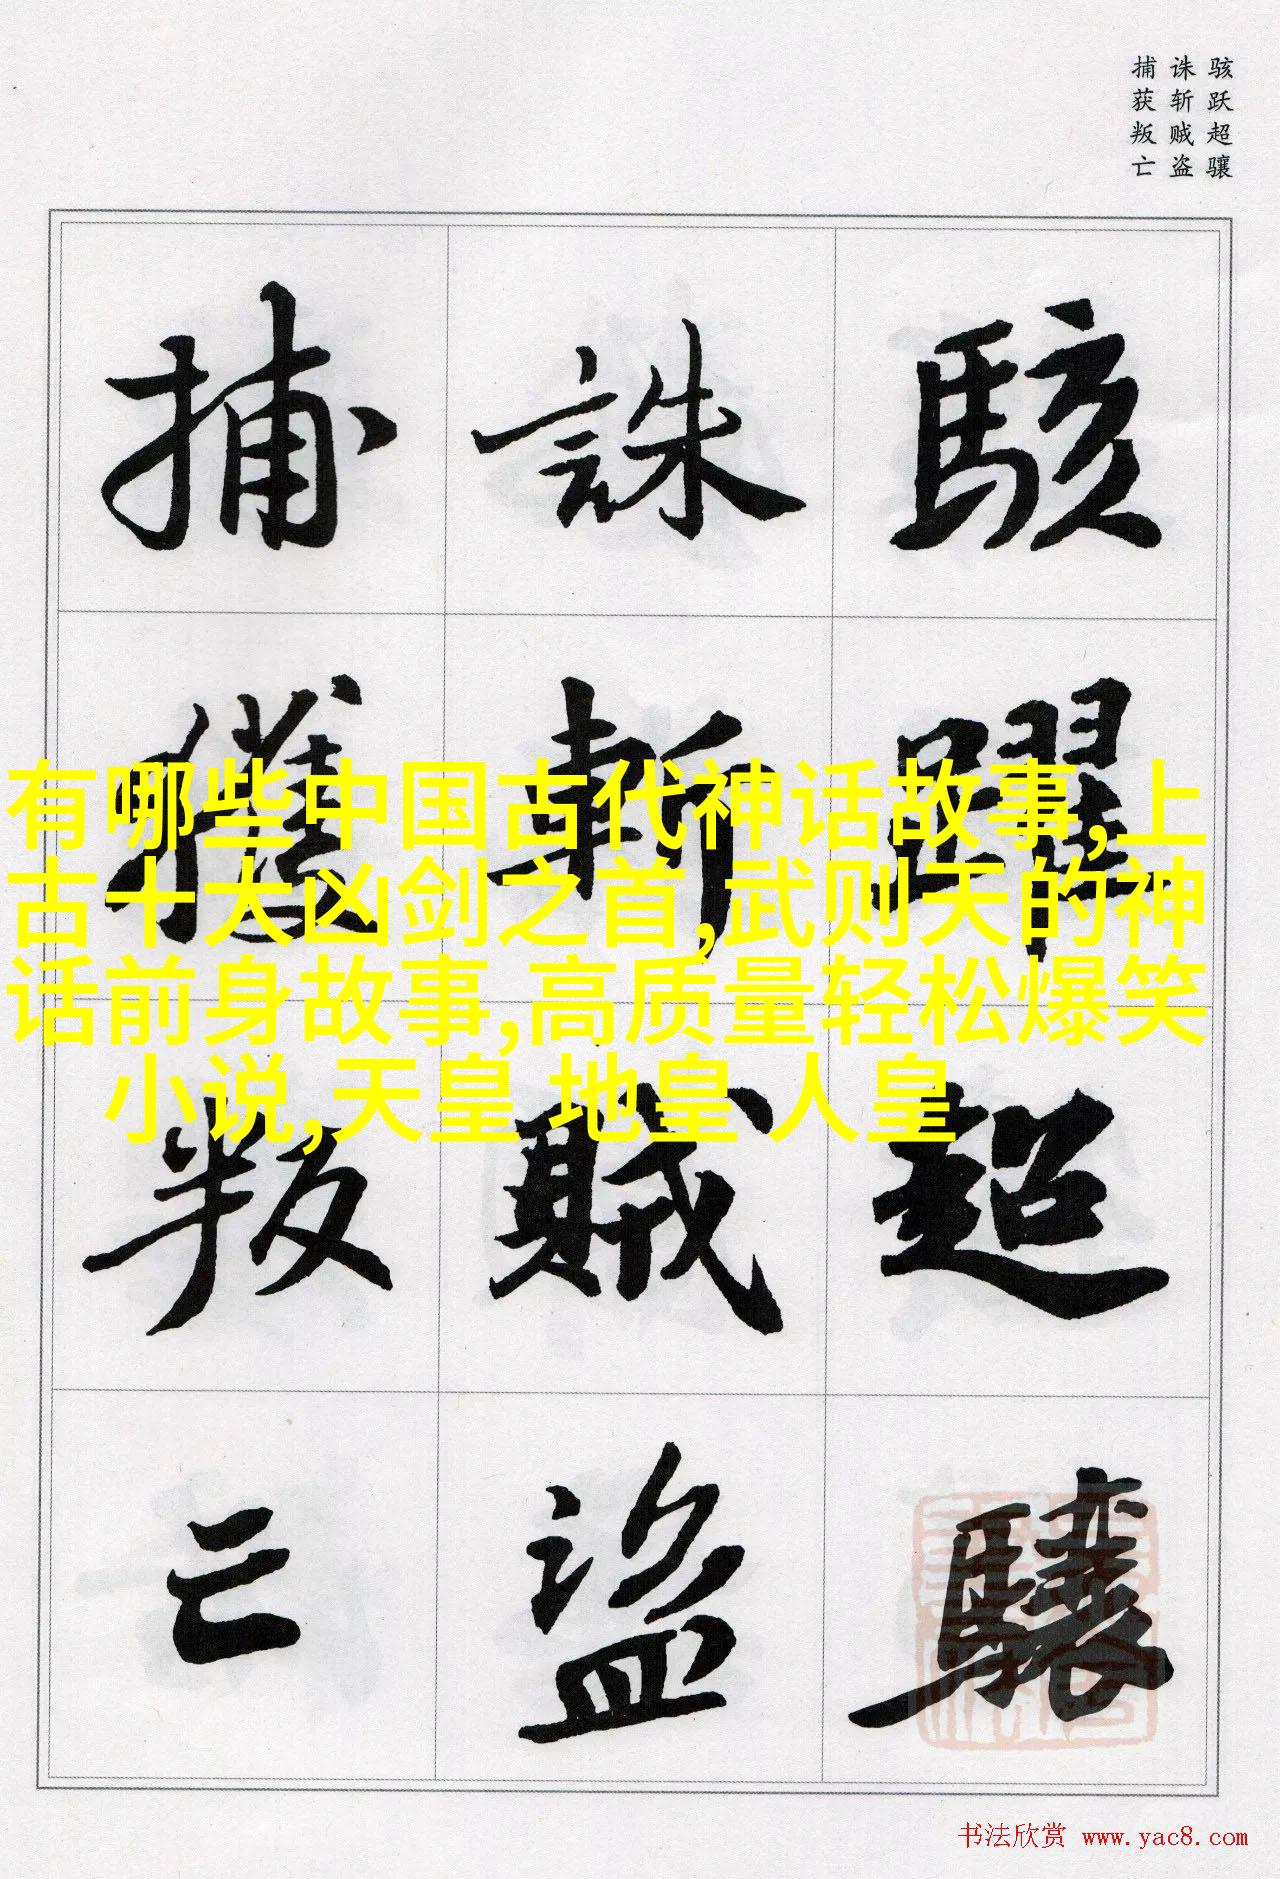 骇跃超骧
诛斩贼盗
捕获叛亡
駭躍超驤
誅斬賊盜
捕獲叛亡
有哪些中国古代神话故事,上
古十大凶剑之首,武则天的神
话前身故事,高质量轻松爆笑
小说,天皇 地皇 人皇
书法欣赏 www.yac8.com